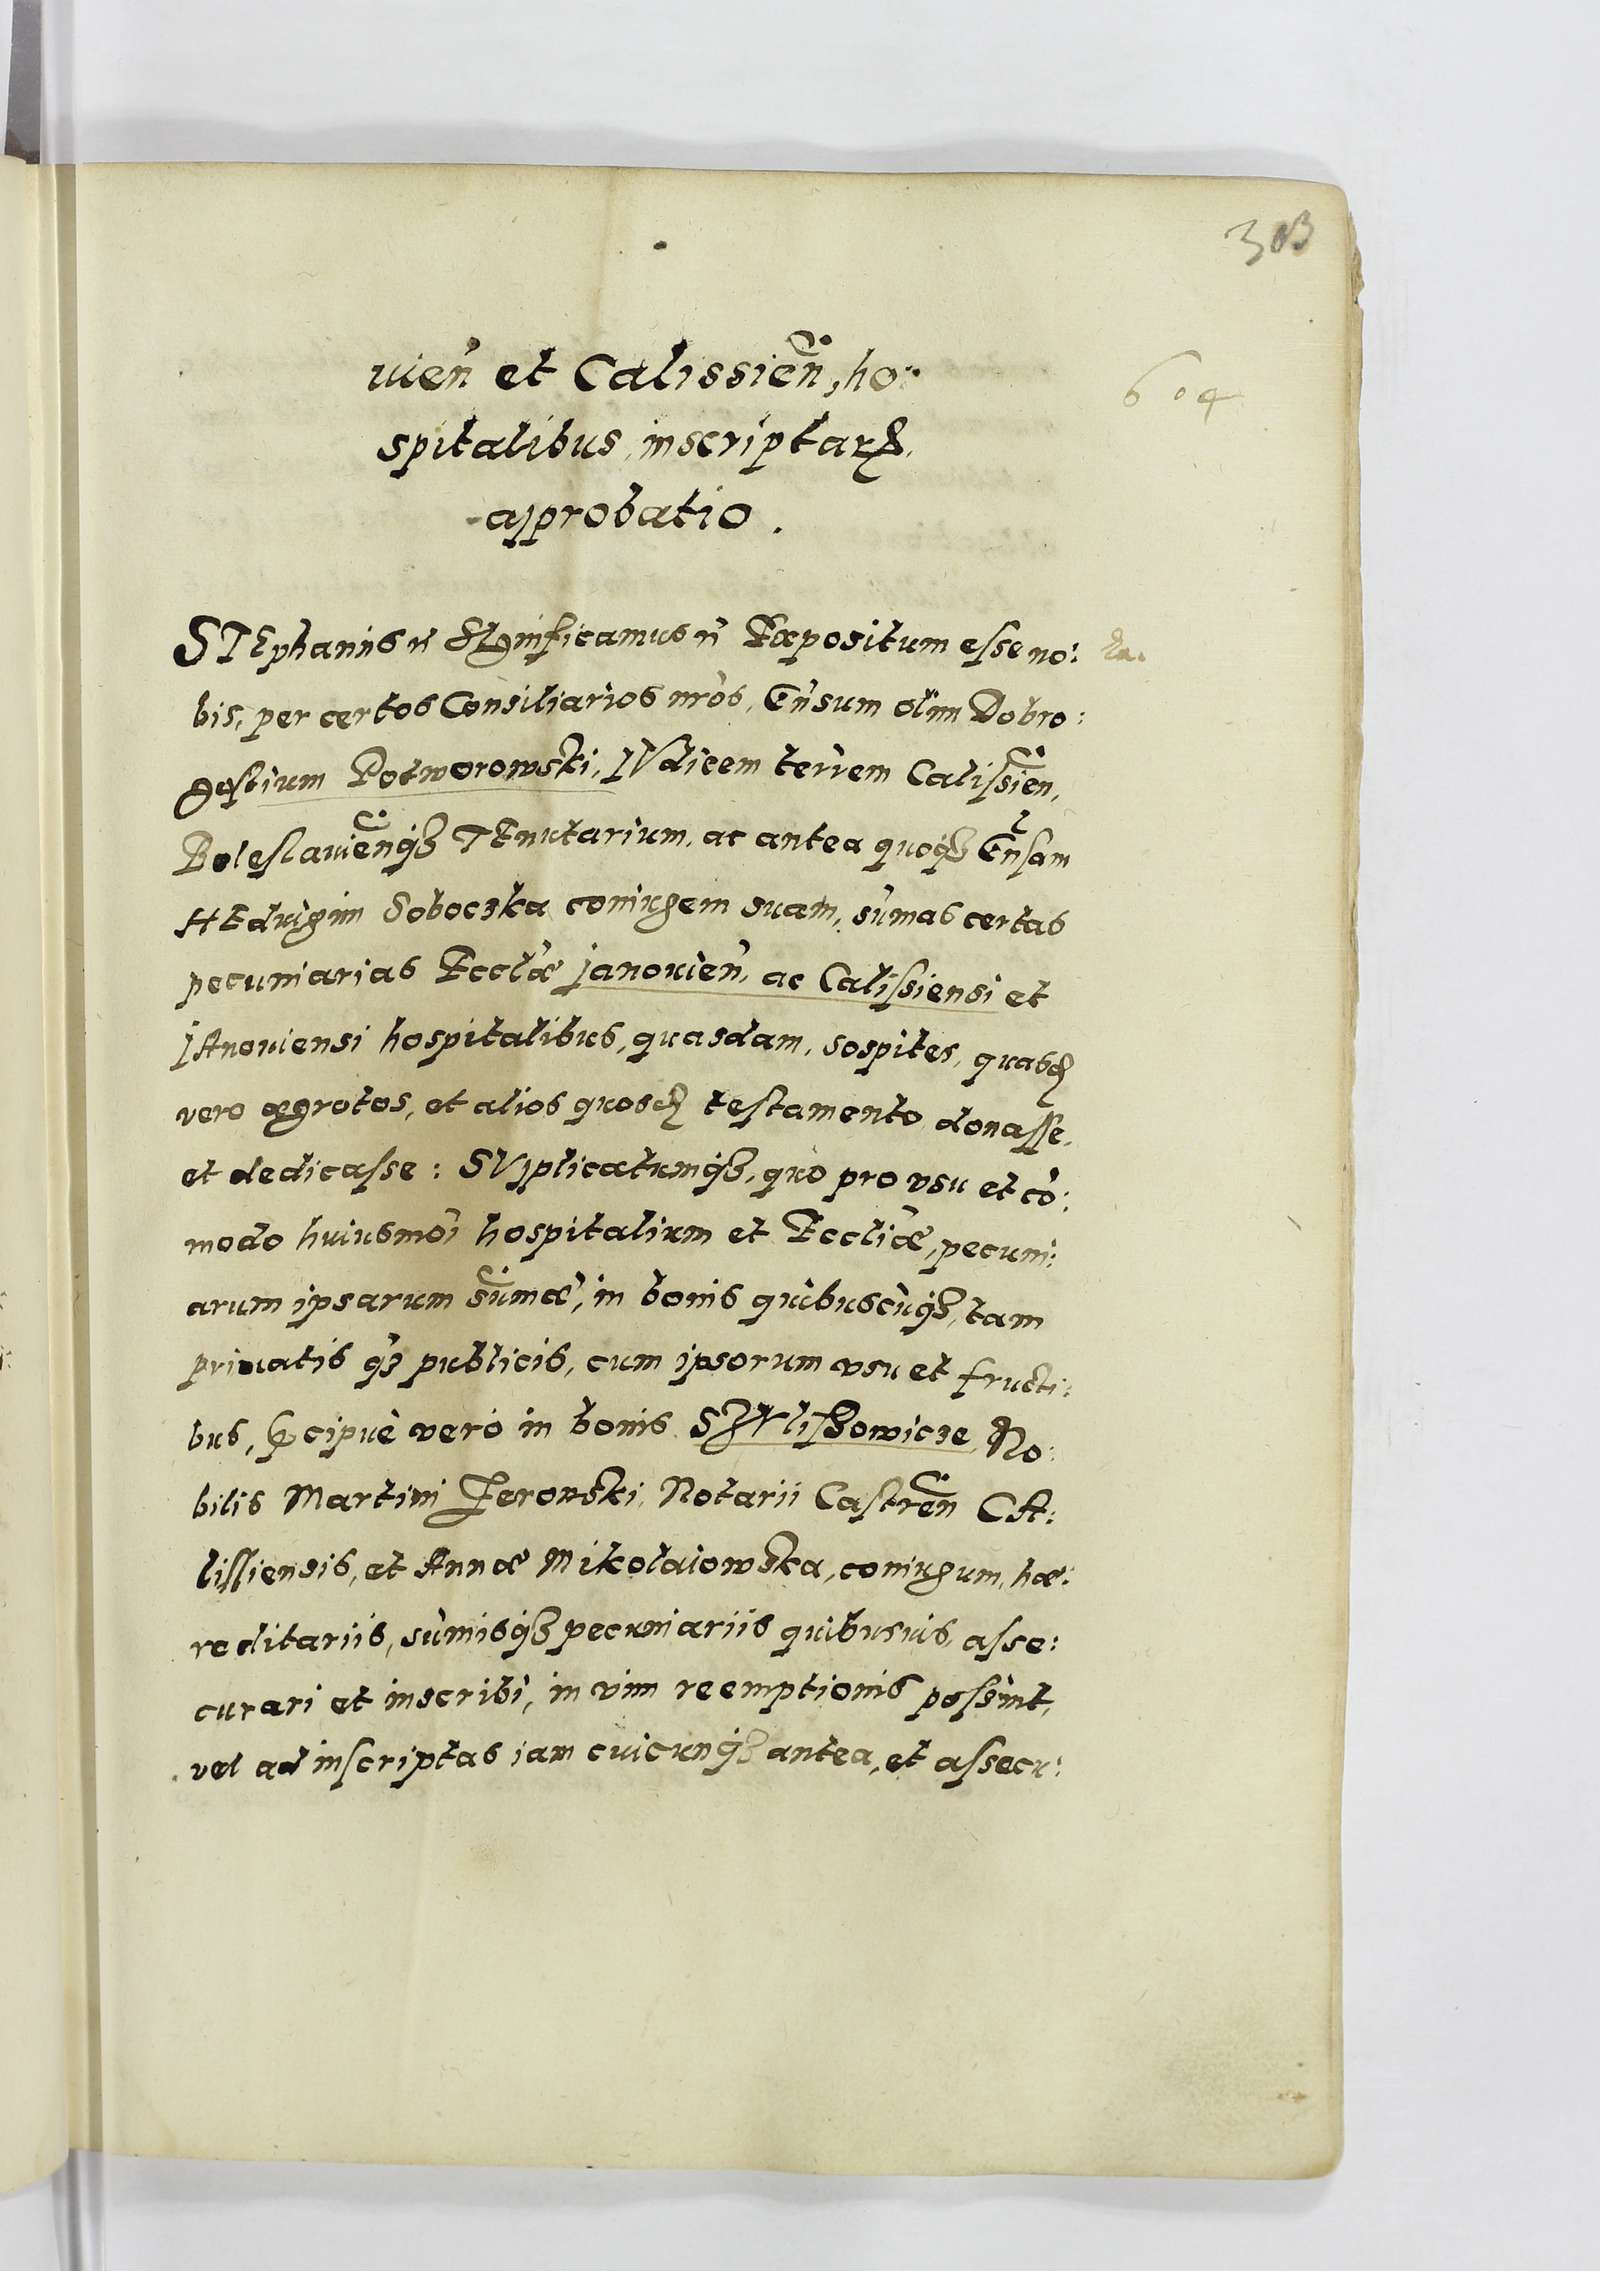 303
604
uien̄ et Calissien̄, ho:
spitalibus inscriptarꝫ
approbatio.
STEphanus n̄ SIgnificamus n̄ Expositum esse no:
bis, per certos Consiliarios nr̄os, Gn̄sum olim Dobro:
gostium Potworowski, IVdicem terrem Calissien̄,
Boleslauien̄qꝫ TEnutarium, ac antea quoqꝫ Gn̄sam
HEduigim Soboczka coniugem suam, sūmas certas
pecuniarias Eccl̄æ janouien̄, ac Calissiensi et
JAnouiensi hospitalibus, quasdam, sospites, quasd̄
vero ægrotos, et alios quosd̄ testamento donasse,
et dedicasse: SVpplicatumqꝫ, quo pro vsu et cō:
modo huiusmōi hospitalium et Eccliæ, pecuni:
arum ipsarum sūmæ, in bonis quibuscūqꝫ, tam
priuatis qꝫ publicis, cum ipsorum vsu et fructi:
bus, p̄cipuè verò in bonis SZVlissowicze No:
bilis Martini Zerowski, Notarii Castren̄ CA:
lissiensis, et Annæ Mikolaiowska, coniugum, hæ:
reditariis, sūmisqꝫ pecuniariis quibusuis, asse:
curari et inscribi, in vim reemptionis possint,
vel ad inscriptas iam cuicunqꝫ antea, et assecu: